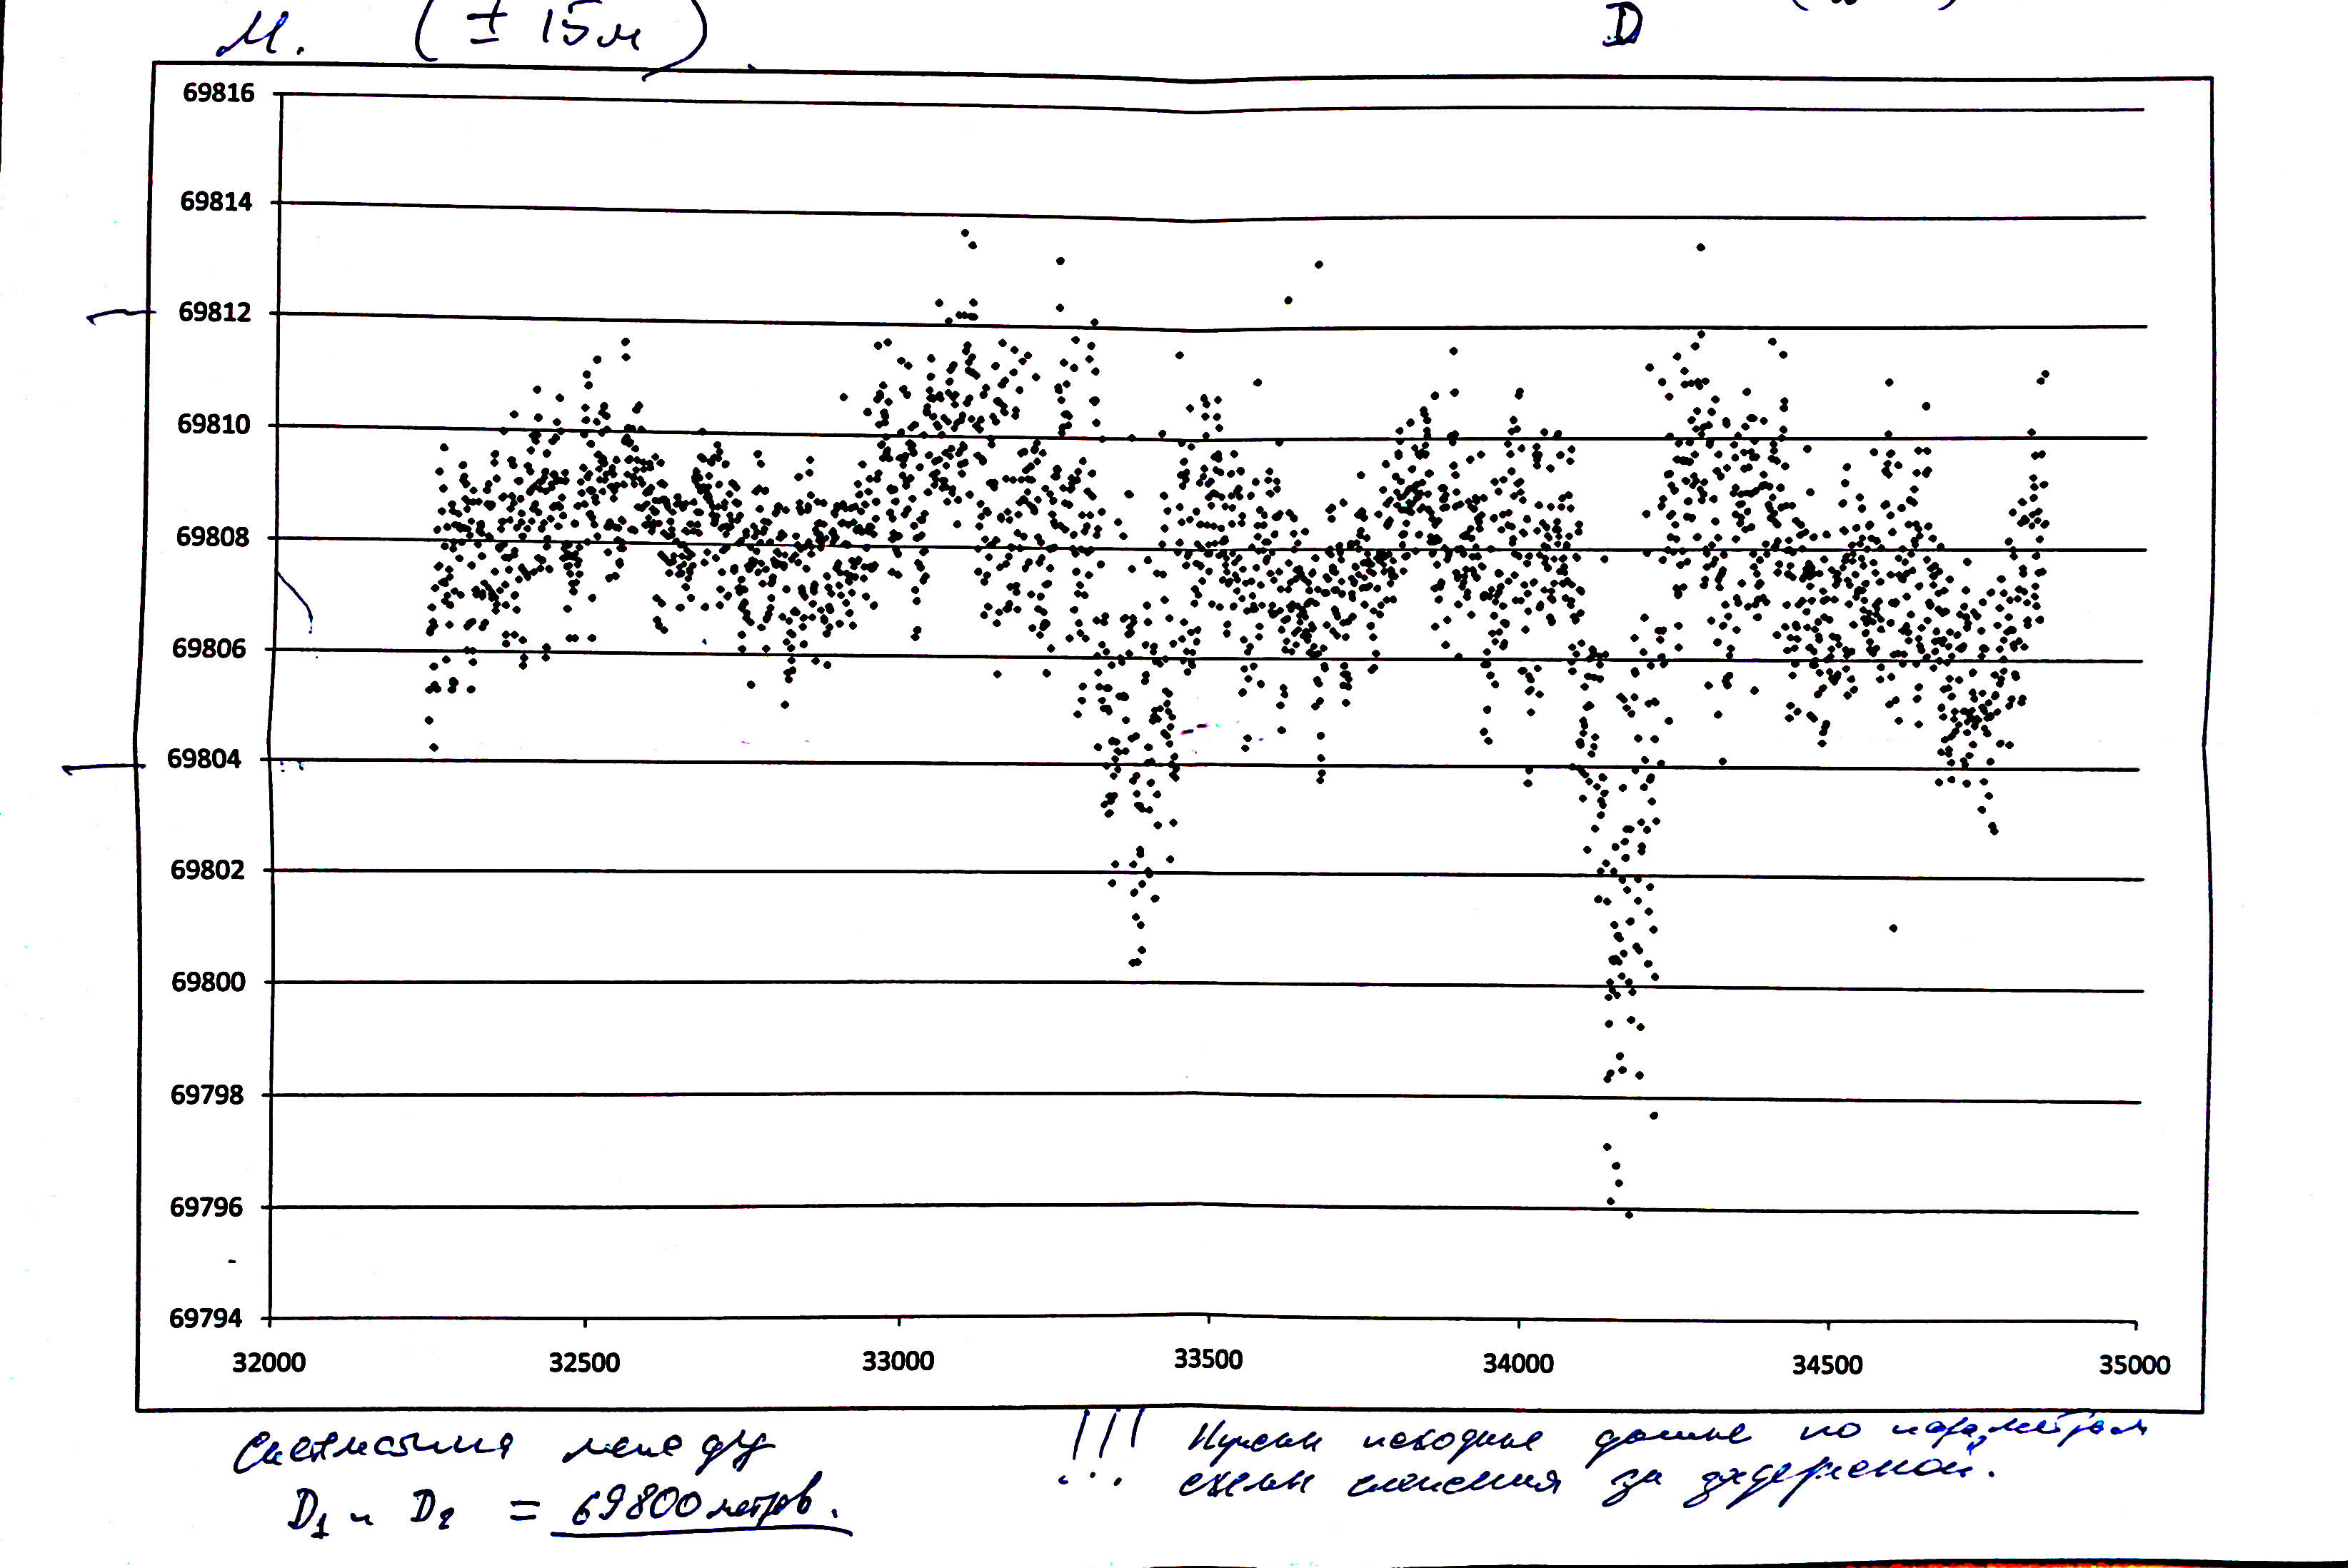 м. (± 15м)
D
69816
69814
69812
69810
69808
69806
69804
69802
69800
69798
69796
69794
32000 32500 33000 33500 34000 34500 35000
между
!!! Нужны исходные данные по параметрам
за задержкой.
D₁ и D₂ = 69800 метров.